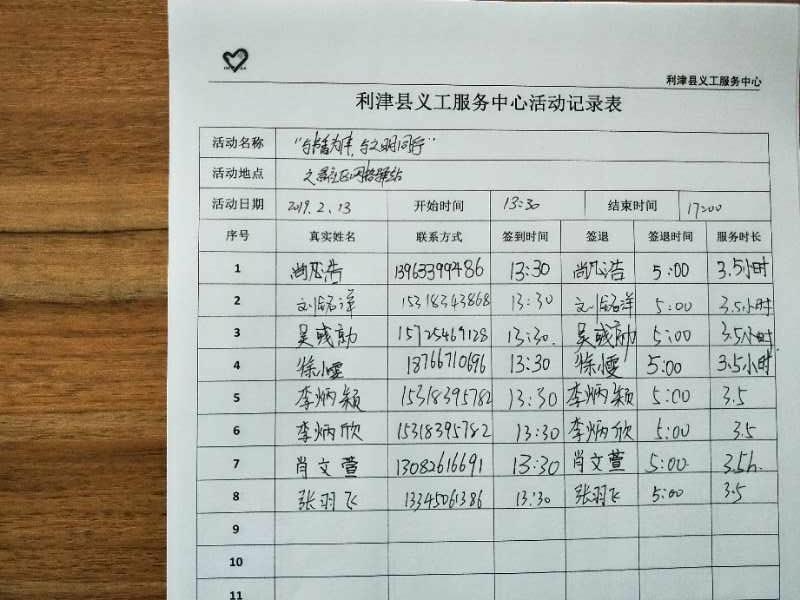 利津县义工服务中心
利津县义工服务中心活动记录表
活动名称 "与慈善为伴，与文明同行"
活动地点 社区网格驿站
活动日期 2019.2.13 开始时间 13:30 结束时间 17:00
序号 真实姓名 联系方式 签到时间 签退 签退时间 服务时长
1 尚 浩 13963399486 13:30 尚 浩 5:00 3.5小时
2 刘 洋 15318343868 13:30 刘 洋 5:00 3.5小时
3 吴彧勋 15725469128 13:30. 吴彧勋 5:00 3.5小时
4 徐小雯 18766710696 13:30 徐小雯 5:00 3.5小时
5 李炳颖 15318395782 13:30 李炳颖 5:00 3.5
6 李炳欣 15318395782 13:30 李炳欣 5:00 3.5
7 肖文萱 13082616691 13:30 肖文萱 5:00. 3.5h.
8 张羽飞 13345061386 13:30 张羽飞 5:00 3.5
9
10
11